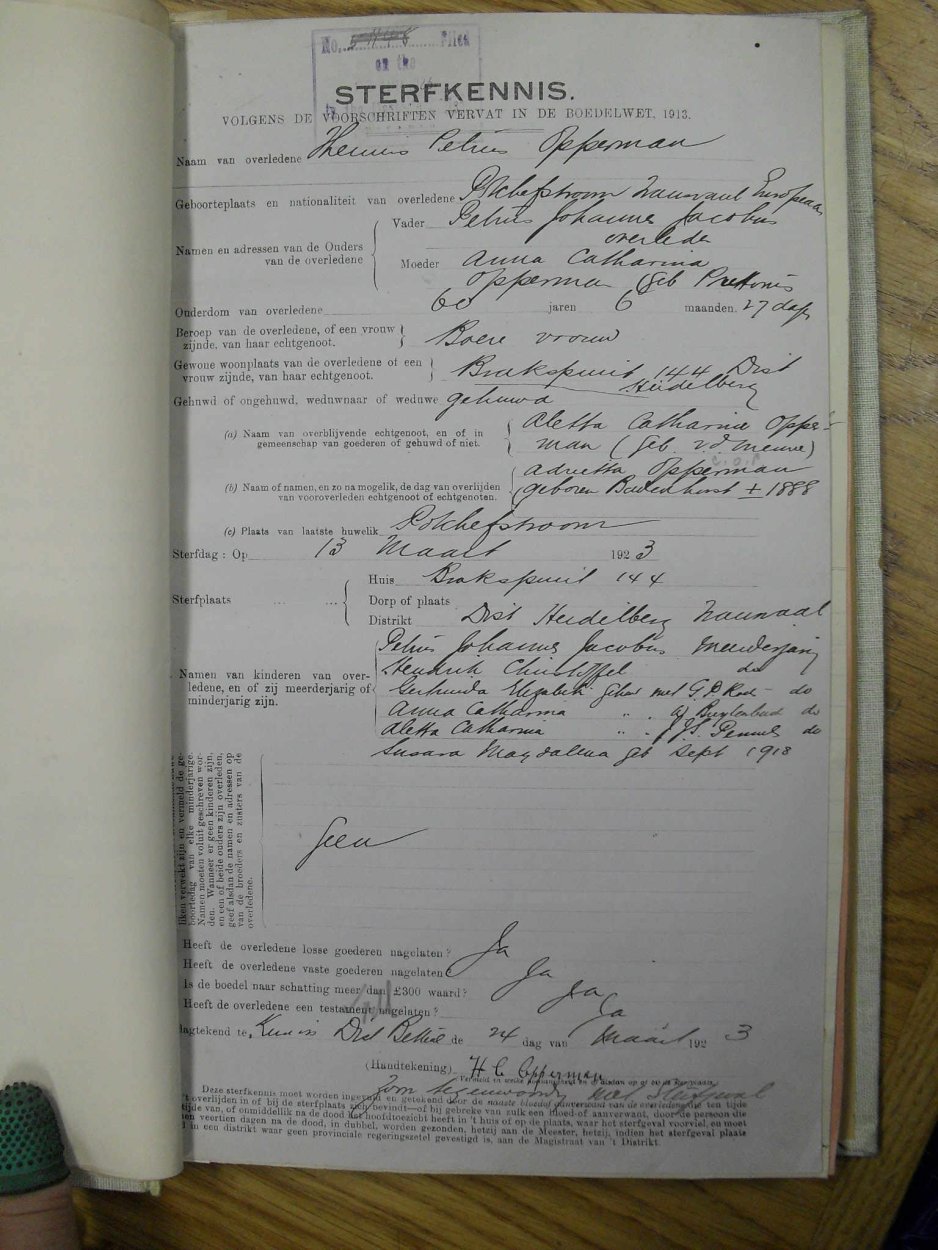 No. Filed
on the
STERFKENNIS.
VOLGENS DE VOORSCHRIFTEN VERVAT IN DE BOEDELWET, 1913.
Naam van overledene Petrus Opperman
Geboorteplaats en nationaliteit van overledene Potchefstroom Transvaal Europeaan
Namen en adressen van de Ouders van de overledene
Vader Petrus Johannes Jacobus
overleden
Moeder Anna Catharina
Opperman geb Pretorius
Ouderdom van overledene 60 jaren 6 maanden. 27 dag
Beroep van de overledene, of een vrouw zijnde, van haar echtgenoot. Boere vrouw
Gewone woonplaats van de overledene of een vrouw zijnde, van haar echtgenoot. Brakspruit 144 Dist
Heidelberg
Gehuwd of ongehuwd, weduwnaar of weduwe gehuwd
(a) Naam van overblijvende echtgenoot, en of in gemeenschap van goederen of gehuwd of niet. Aletta Catharina Opper-
man (geb. v.d. )
(b) Naam of namen, en zo na mogelik, de dag van overlijden van vooroverleden echtgenoot of echtgenoten. Opperman
geboren Badenhorst ± 1888
(c) Plaats van laatste huwelik Potchefstroom
Sterfdag: Op 13 Maart 1923
Sterfplaats
Huis Brakspruit 144
Dorp of plaats
Distrikt Dist Heidelberg Transvaal
Namen van kinderen van overledene, en of zij meerderjarig of minderjarig zijn.
Petrus Johannes Jacobus Meerderjarig
Hendrik Christoffel do
Gertruida Elizabeth gehuwd met G.P. do
Anna Catharina " " do
Aletta Catharina " " J.S. do
Susara Magdalena geb Sept 1918
liken verwekt zijn en vermeld de geboortedag van elke minderjarige. Namen moeten voluit geschreven worden. Wanneer er geen kinderen zijn, en een of beide ouders zijn overleden, geef alsdan de namen en adressen op van de broeders en zusters van de overledene.
Geen
Heeft de overledene losse goederen nagelaten? Ja
Heeft de overledene vaste goederen nagelaten Ja
Is de boedel naar schatting meer dan £300 waard? Ja
Heeft de overledene een testament nagelaten? Ja
Dagtekend te, Dist Bethal de 24 dag van Maart 1923
(Handtekening) H C Opperman
Zoon tegenwoordig
Deze sterfkennis moet worden ingevuld en getekend door de naaste bloed of aanverwant van de overledene die ten tijde
't overlijden in of bij de sterfplaats zich bevindt—of bij gebreke van zulk een bloed-of aanverwant, door de persoon die
tijde van, of onmiddellik na de dood het hoofdtoezicht heeft in 't huis of op de plaats, waar het sterfgeval voorviel, en moet
en veertien dagen na de dood, in dubbel, worden gezonden, hetzij aan de Meester, hetzij, indien het sterfgeval plaats
in een distrikt waar geen provinciale regeringszetel gevestigd is, aan de Magistraat van 't Distrikt.